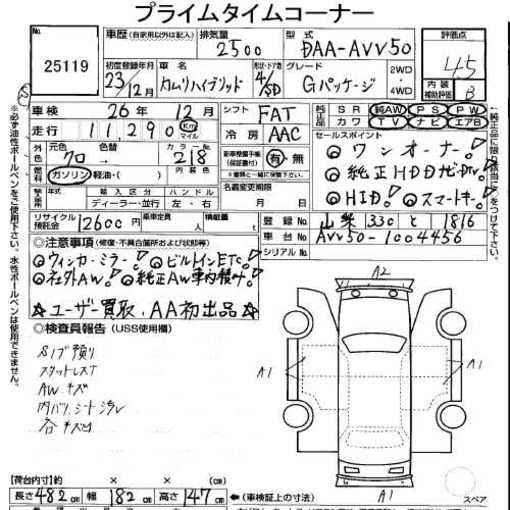 プライムタイムコーナー
25119
車歴 (自家用以外は記入)
排気量 2500
型式 DAA-AVV50
評価点 4.5
内装 補助評価 B
初度登録年月 23/12月
車名 カムリハイブリッド
形状・ドア数 4/SD
グレード Gパッケージ
2WD
4WD
車検 26年 12月
シフト FAT
純正品 SR 純AW PS PW
カワ TV ナビ エアB
走行 11,290 Km マイル
冷房 AAC
セールスポイント
外色 元色 クロ 色替 カラーNo. 218
新車整備手帳(保証書付) 有・無
※書類と一緒に保管
◎ワンオーナー!
◎純正HDDナビDTV
◎HID! ◎スマートキー!
燃料 ガソリン・軽油・( )
名義変更期限
月 日
輸入車 輸入区分 ハンドル
ディーラー・並行 左・右
リサイクル預託金 12600円
乗車定員 人
積載量 t
登録No. 山梨 330 と 1816
車台No. AVV50-1004456
シリアルNo.
◎注意事項 (修復・不具合箇所および状態等)
◎ウィンカーミラー! ◎ビルトインETC!
◎社外AW! ◎純正AW車内積み!
☆ユーザー買取、AA初出品☆
◎検査員報告 (USS使用欄)
Sリブ預り
スタットレスT
AWキズ
内バリ、シート汚レ
各キズ凹
A2
A1
A1
A1
スペア
※必ず油性ボールペンをご使用下さい。水性ボールペン
【荷台内寸】約 × × cm
長さ 482cm 幅 182cm 高さ 147cm
◀(車検証上の寸法)